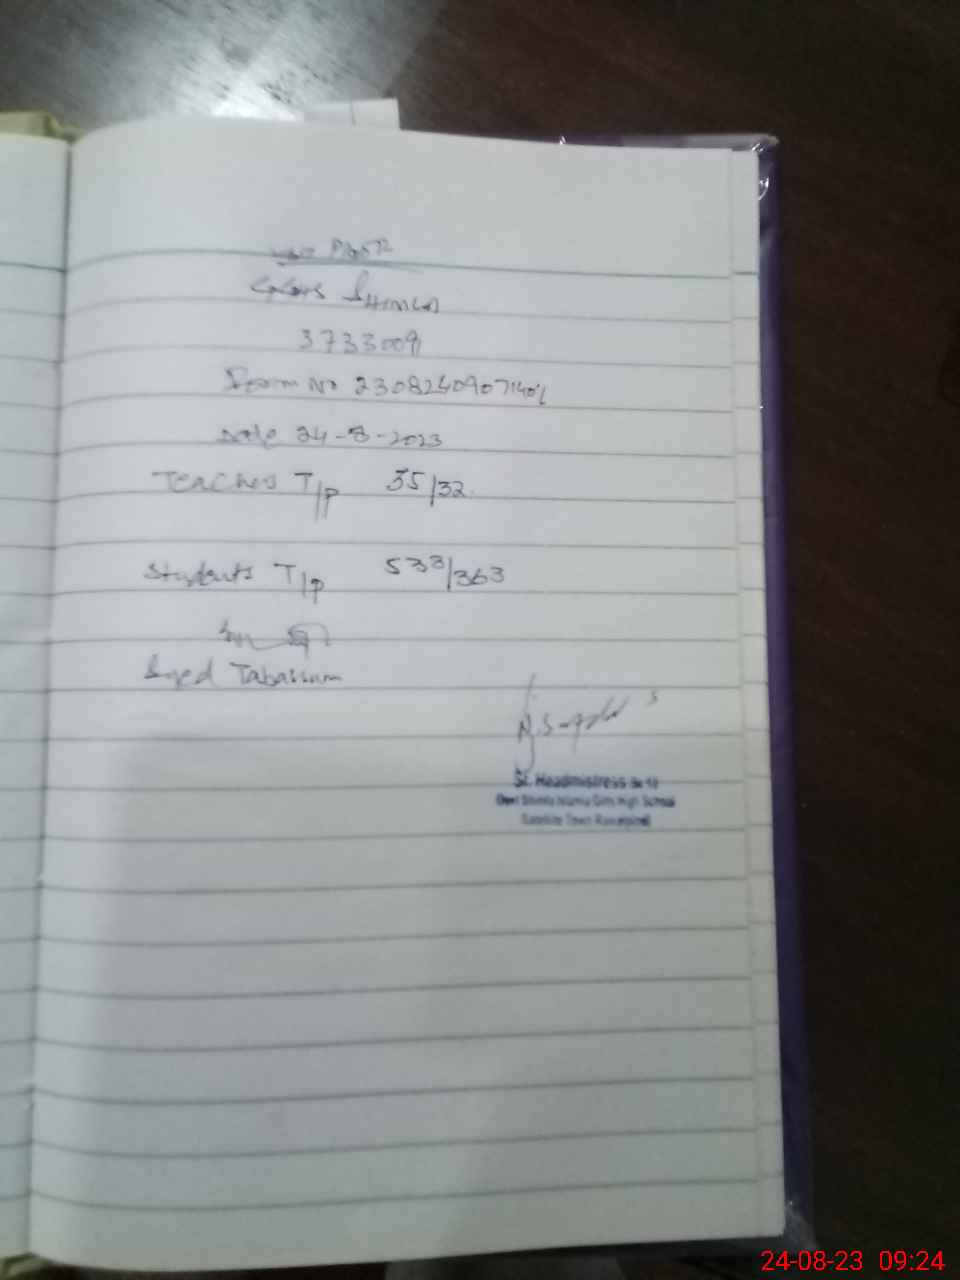 GGHS Shimla
37330091
Form No 23082409071401
Date 24-8-2023
Teachers T/P 35/32
Students T/P 533/363
Syed Tabassum
Sr. Headmistress
Govt Shimla Islamia Girls High School
Satellite Town Rawalpindi
24-08-23 09:24